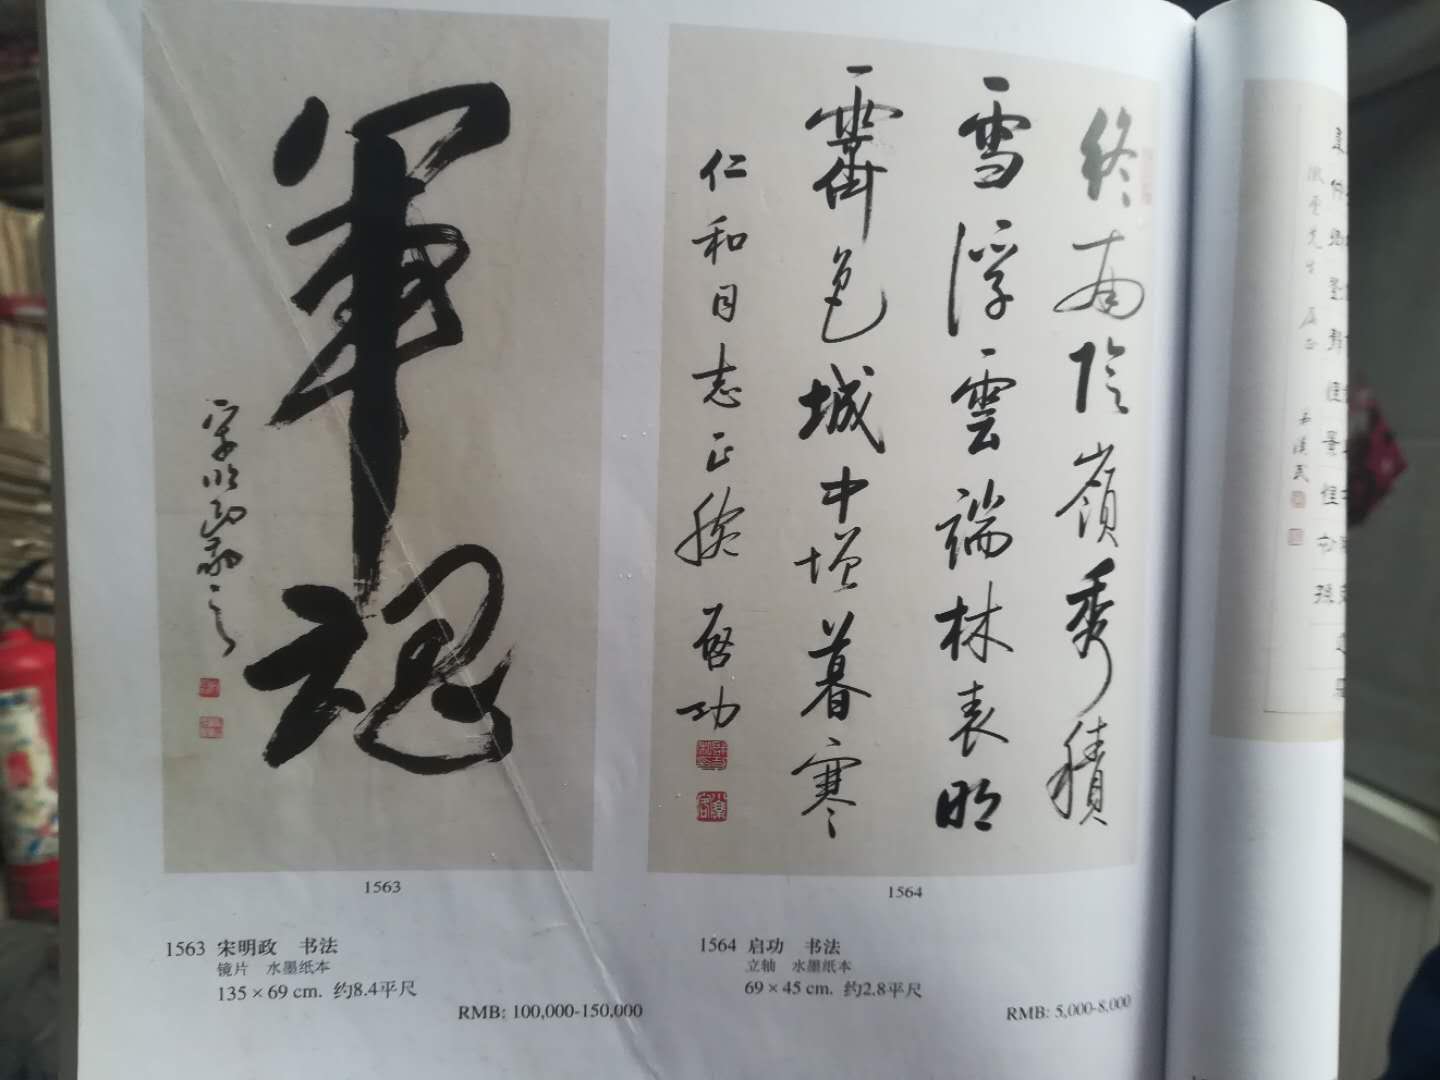 軍魂
宋明政
終南陰嶺秀積
雪浮雲端林表明
霽色城中增暮寒
仁和同志正腕 启功
1563
1564
1563 宋明政 书法
镜片 水墨纸本
135 × 69 cm. 约8.4平尺
RMB: 100,000-150,000
1564 启功 书法
立轴 水墨纸本
69 × 45 cm. 约2.8平尺
RMB: 5,000-8,000